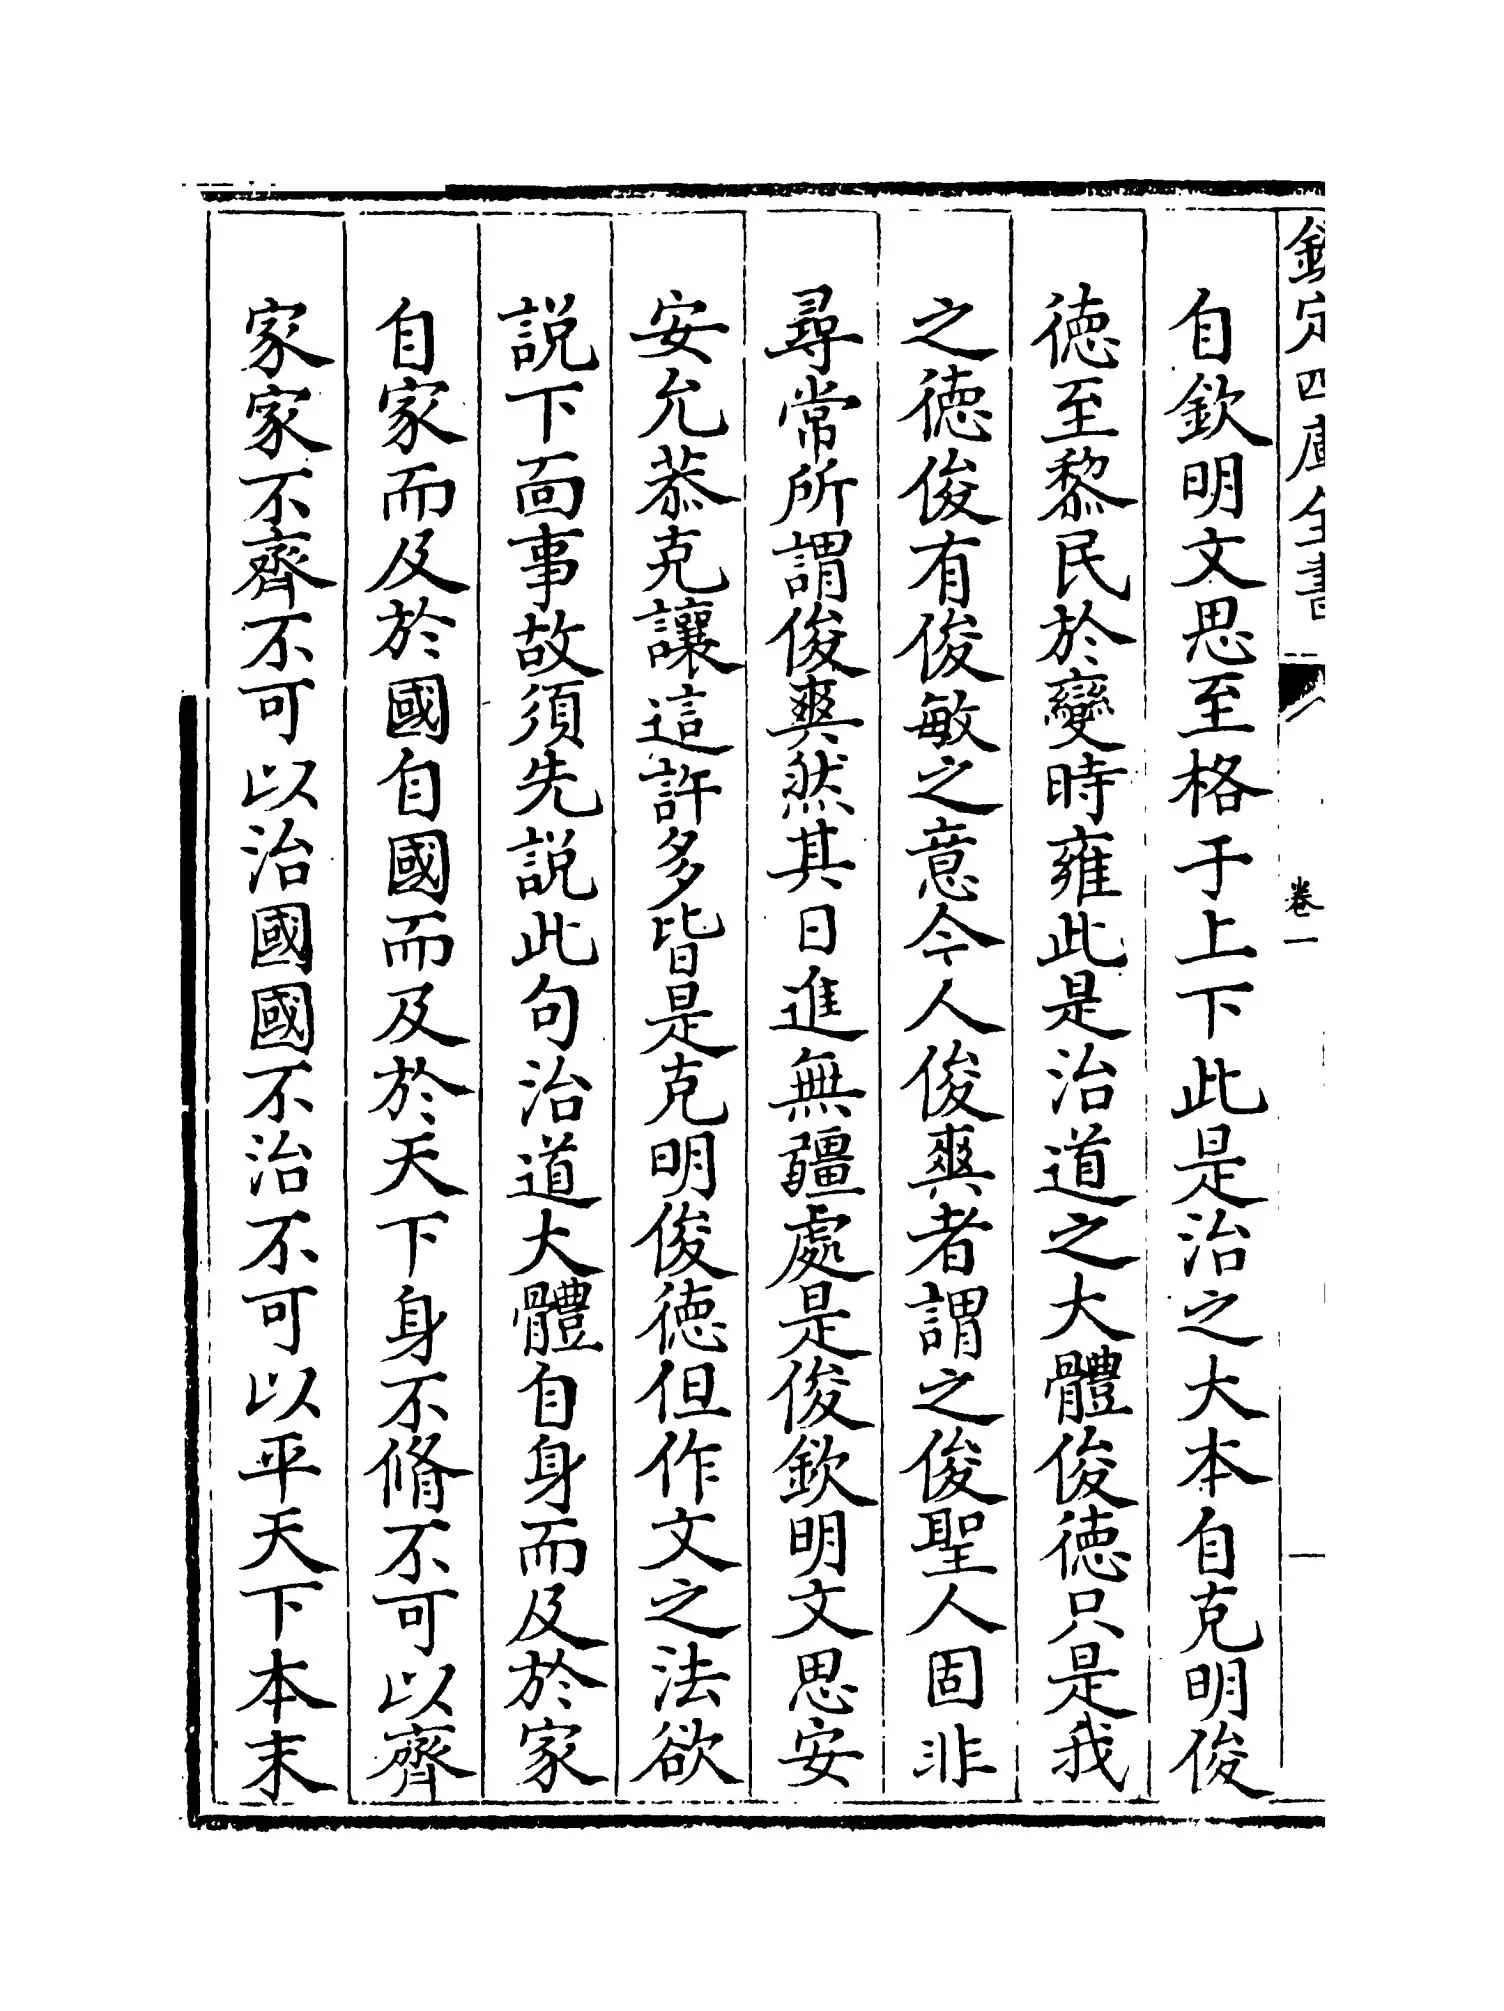 欽定四庫全書
卷一
一
自欽明文思至格于上下此是治之大本自克明俊
徳至黎民於變時雍此是治道之大體俊徳只是我
之徳俊有俊敏之意今人俊爽者謂之俊聖人固非
尋常所謂俊爽然其日進無疆處是俊欽明文思安
安允恭克讓這許多皆是克明俊徳但作文之法欲
説下面事故須先説此句治道大體自身而及於家
自家而及於國自國而及於天下身不脩不可以齊
家家不齊不可以治國國不治不可以平天下本末